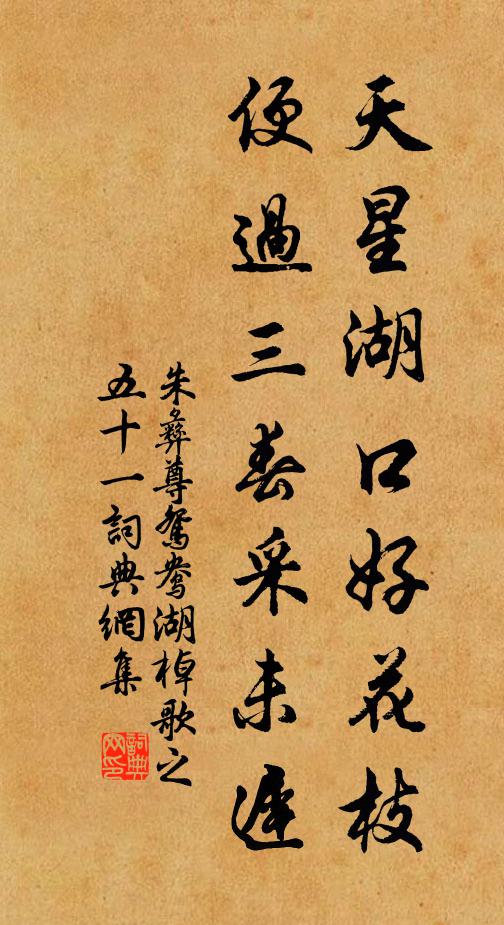 天星湖口好花枝
便過三春采未遲
朱彝尊鴛鴦湖棹歌之
五十一詞典網集
詞典
网印